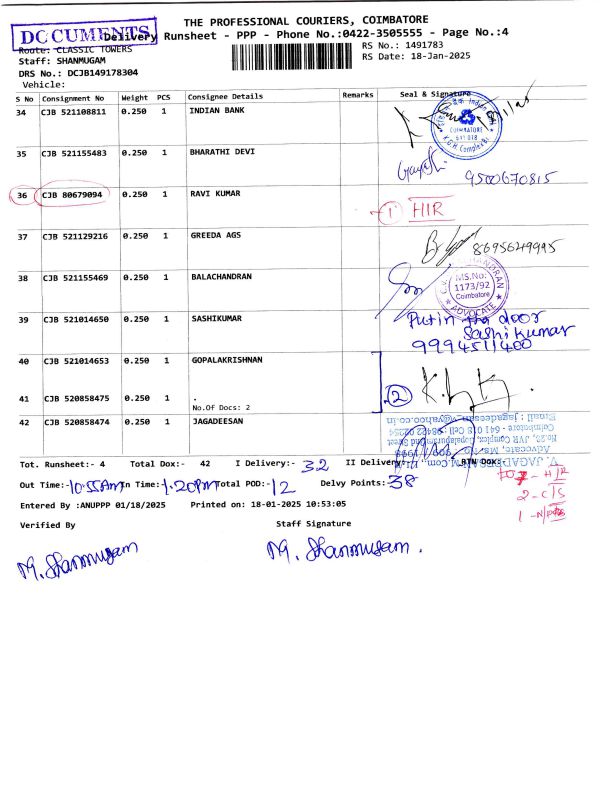 THE PROFESSIONAL COURIERS, COIMBATORE
DOCUMENTS
Delivery Runsheet - PPP - Phone No.:0422-3505555 - Page No.:4
Route: CLASSIC TOWERS
RS No.: 1491783
Staff: SHANMUGAM
RS Date: 18-Jan-2025
DRS No.: DCJB149178304
Vehicle:
S No Consignment No Weight PCS Consignee Details Remarks Seal & Signature
34 CJB 521108811 0.250 1 INDIAN BANK
COIMBATORE
641 018
35 CJB 521155483 0.250 1 BHARATHI DEVI
9500670815
36 CJB 80679094 0.250 1 RAVI KUMAR
1 HIR
37 CJB 521129216 0.250 1 GREEDA AGS
8695649995
38 CJB 521155469 0.250 1 BALACHANDRAN
MS.No:
1173/92
Coimbatore
ADVOCATE
39 CJB 521014650 0.250 1 SASHIKUMAR
Put in the door
Sashi kumar
9994511400
40 CJB 521014653 0.250 1 GOPALAKRISHNAN
2
41 CJB 520858475 0.250 1 .
No.Of Docs: 2
42 CJB 520858474 0.250 1 JAGADEESAN
Tot. Runsheet:- 4 Total Dox:- 42 I Delivery:- 32 II Delivery:- RTN Dox:-
Out Time:- 10:55Am In Time:- 1:20pm Total POD:- 12 Delvy Points:- 38
7 - HIR
2 - C/S
Entered By :ANUPPP 01/18/2025 Printed on: 18-01-2025 10:53:05
Verified By Staff Signature
M. Shanmugam M. Shanmugam.